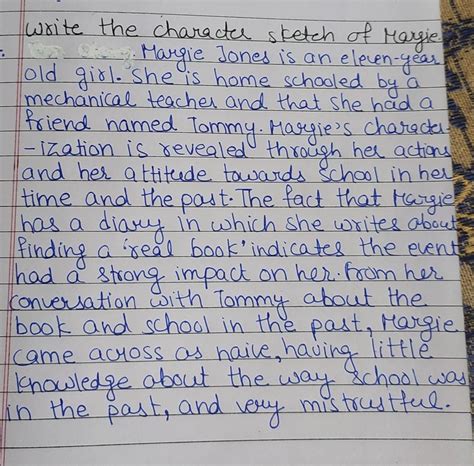 write the character sketch of Margie
Margie Jones is an eleven-year
old girl. She is home schooled by a
mechanical teacher and that she had a
friend named Tommy. Margie's character
-ization is revealed through her actions
and her attitude towards school in her
time and the past. The fact that Margie
has a diary in which she writes about
finding a 'real book' indicates the event
had a strong impact on her. From her
conversation with Tommy about the
book and school in the past, Margie
came across as naive, having little
knowledge about the way school was
in the past, and very mistrustful.